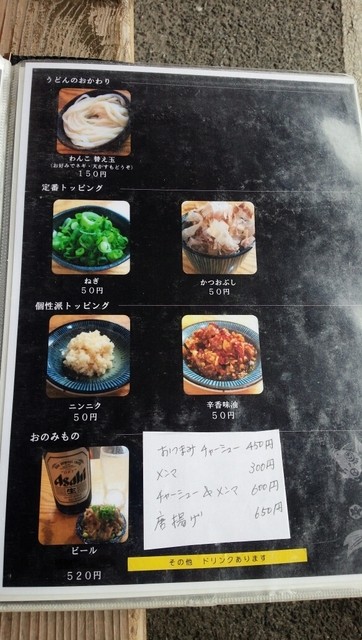 うどんのおかわり
わんこ 替え玉
(お好みでネギ・天かすもどうぞ)
150円
定番トッピング
ねぎ
50円
かつおぶし
50円
個性派トッピング
ニンニク
50円
辛香味油
50円
おのみもの
Asahi
ビール
520円
おつまみ チャーシュー 450円
メンマ 300円
チャーシュー&メンマ 600円
唐揚げ 650円
その他 ドリンクあります